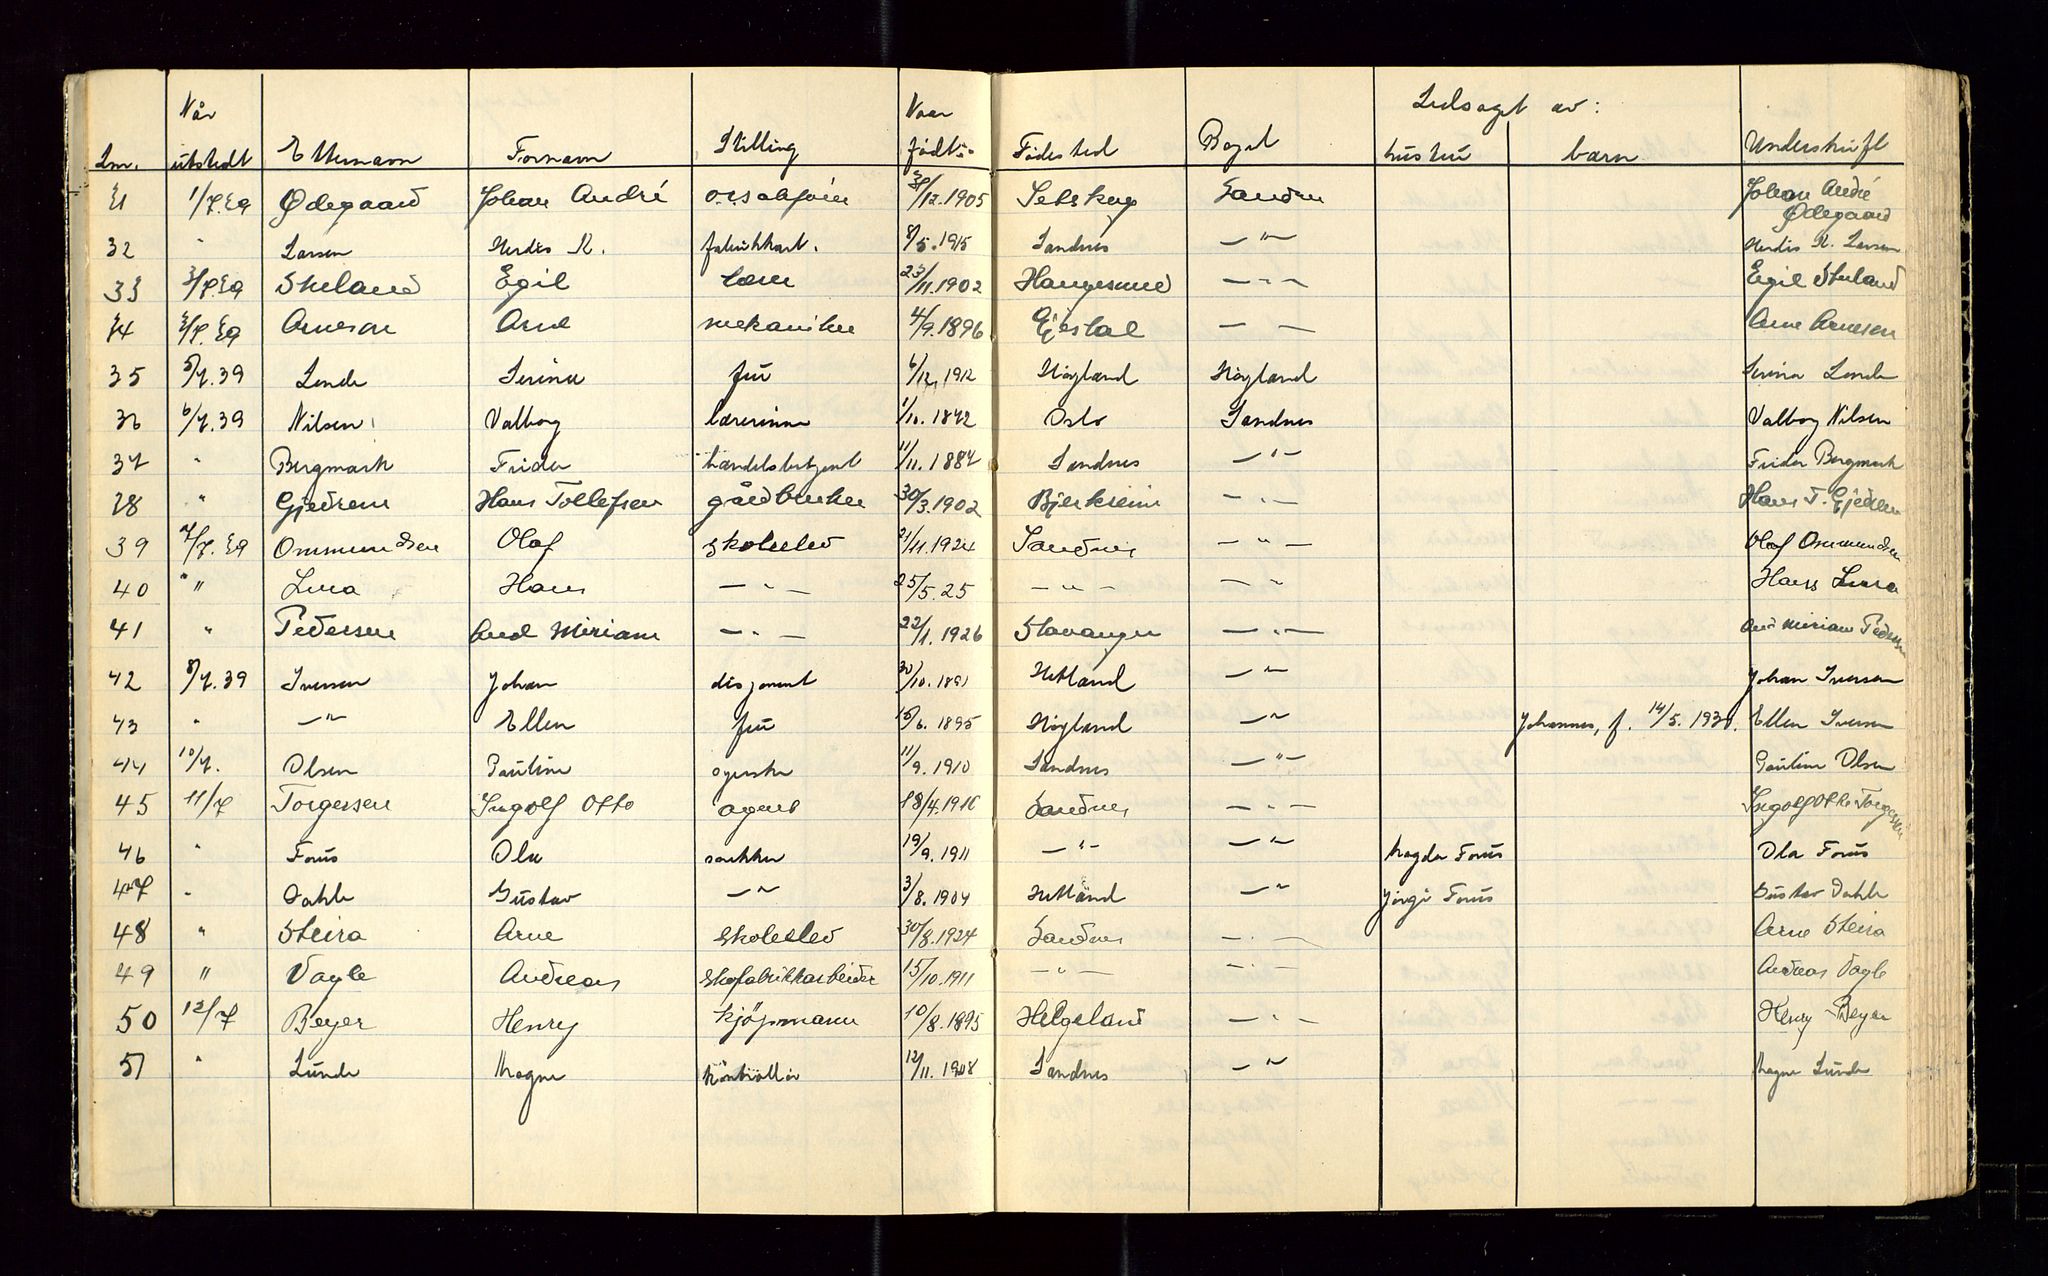 Når Naar Ledsaget av:
Lnr. utstedt Etternavn Fornavn Stilling født: Fødested Bopel hustru barn Underskrift
31 1/7.39 Ødegaard Johan André 31/12.1905 Setskog Sandnes Johan André Ødegaard
32 " Larsen Herdis K. fabrikkarb. 8/5.1915 Sandnes —"— Herdis K. Larsen
33 3/7.39 Skeland Egil lærer 23/11.1902 Haugesund —"— Egil Skeland
34 3/7.39 Arneson Arne mekaniker 4/9.1896 Gjestal —"— Arne Arneson
35 5/7.39 Lende Serina fru 6/12.1912 Høyland Høyland Serina Lende
36 6/7.39 Nilsen Valborg lærerinne 1/10.1872 Oslo Sandnes Valborg Nilsen
37 " Bergmark Frida handelsbetjent 11/11.1887 Sandnes —"— Frida Bergmark
38 " Gjedrem Hans Tollefsen gårdbruker 30/3.1902 Bjerkreim —"— Hans T. Gjedrem
39 7/7.39 Ommundsen Olaf skoleelev 21/11.1924 Sandnes —"— Olaf Ommundsen
40 " " Lura Hans —"— 25/5.25 —"— —"— Hans Lura
41 " Pedersen Aud Miriam —"— 22/1.1926 Stavanger —"— Aud Miriam Pedersen
42 8/7.39 Iversen Johan disponent 30/10.1891 Hetland —"— Johan Iversen
43 " —"— Ellen fru 15/6.1895 Høyland —"— Johannes, f. 14/5.1930. Ellen Iversen
44 10/7. Olsen Pauline syerske 11/9.1910 Sandnes —"— Pauline Olsen
45 11/7 Torgersen Ingolf Otto agent 18/4.1916 Sandnes —"— Ingolf Otto Torgersen
46 " Forus Ola snekker 19/9.1911 —"— —"— Magda Forus Ola Forus
47 " Dahle Gustav —"— 3/8.1904 Hetland —"— Forus Gustav Dahle
48 " Steira Arne Skoleelev 30/8.1924 Sandnes —"— Arne Steira
49 " Vagle Andreas Skofabrikkarbeider 15/10.1911 —"— —"— Andreas Vagle
50 12/7 Beyer Henry kjöpmann 10/8.1895 Helgeland —"— Henry Beyer
51 " Lunde Magne kontrollør 12/11.1908 Sandnes —"— Magne Lunde